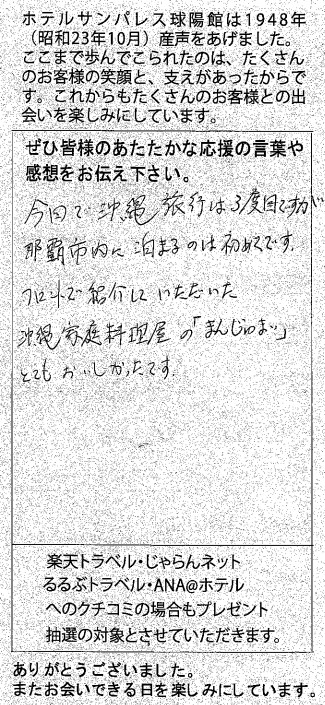 ホテルサンパレス球陽館は1948年
（昭和23年10月）産声をあげました。
ここまで歩んでこられたのは、たくさん
のお客様の笑顔と、支えがあったからで
す。これからもたくさんのお客様との出
会いを楽しみにしています。
ぜひ皆様のあたたかな応援の言葉や
感想をお伝え下さい。
今回で沖縄旅行は3度目ですが
那覇市内に泊まるのは初めてです。
フロントで紹介していただいた
沖縄家庭料理屋の「まんじゅまい」
とてもおいしかったです。
楽天トラベル・じゃらんネット
るるぶトラベル・ANA@ホテル
へのクチコミの場合もプレゼント
抽選の対象とさせていただきます。
ありがとうございました。
またお会いできる日を楽しみにしています。